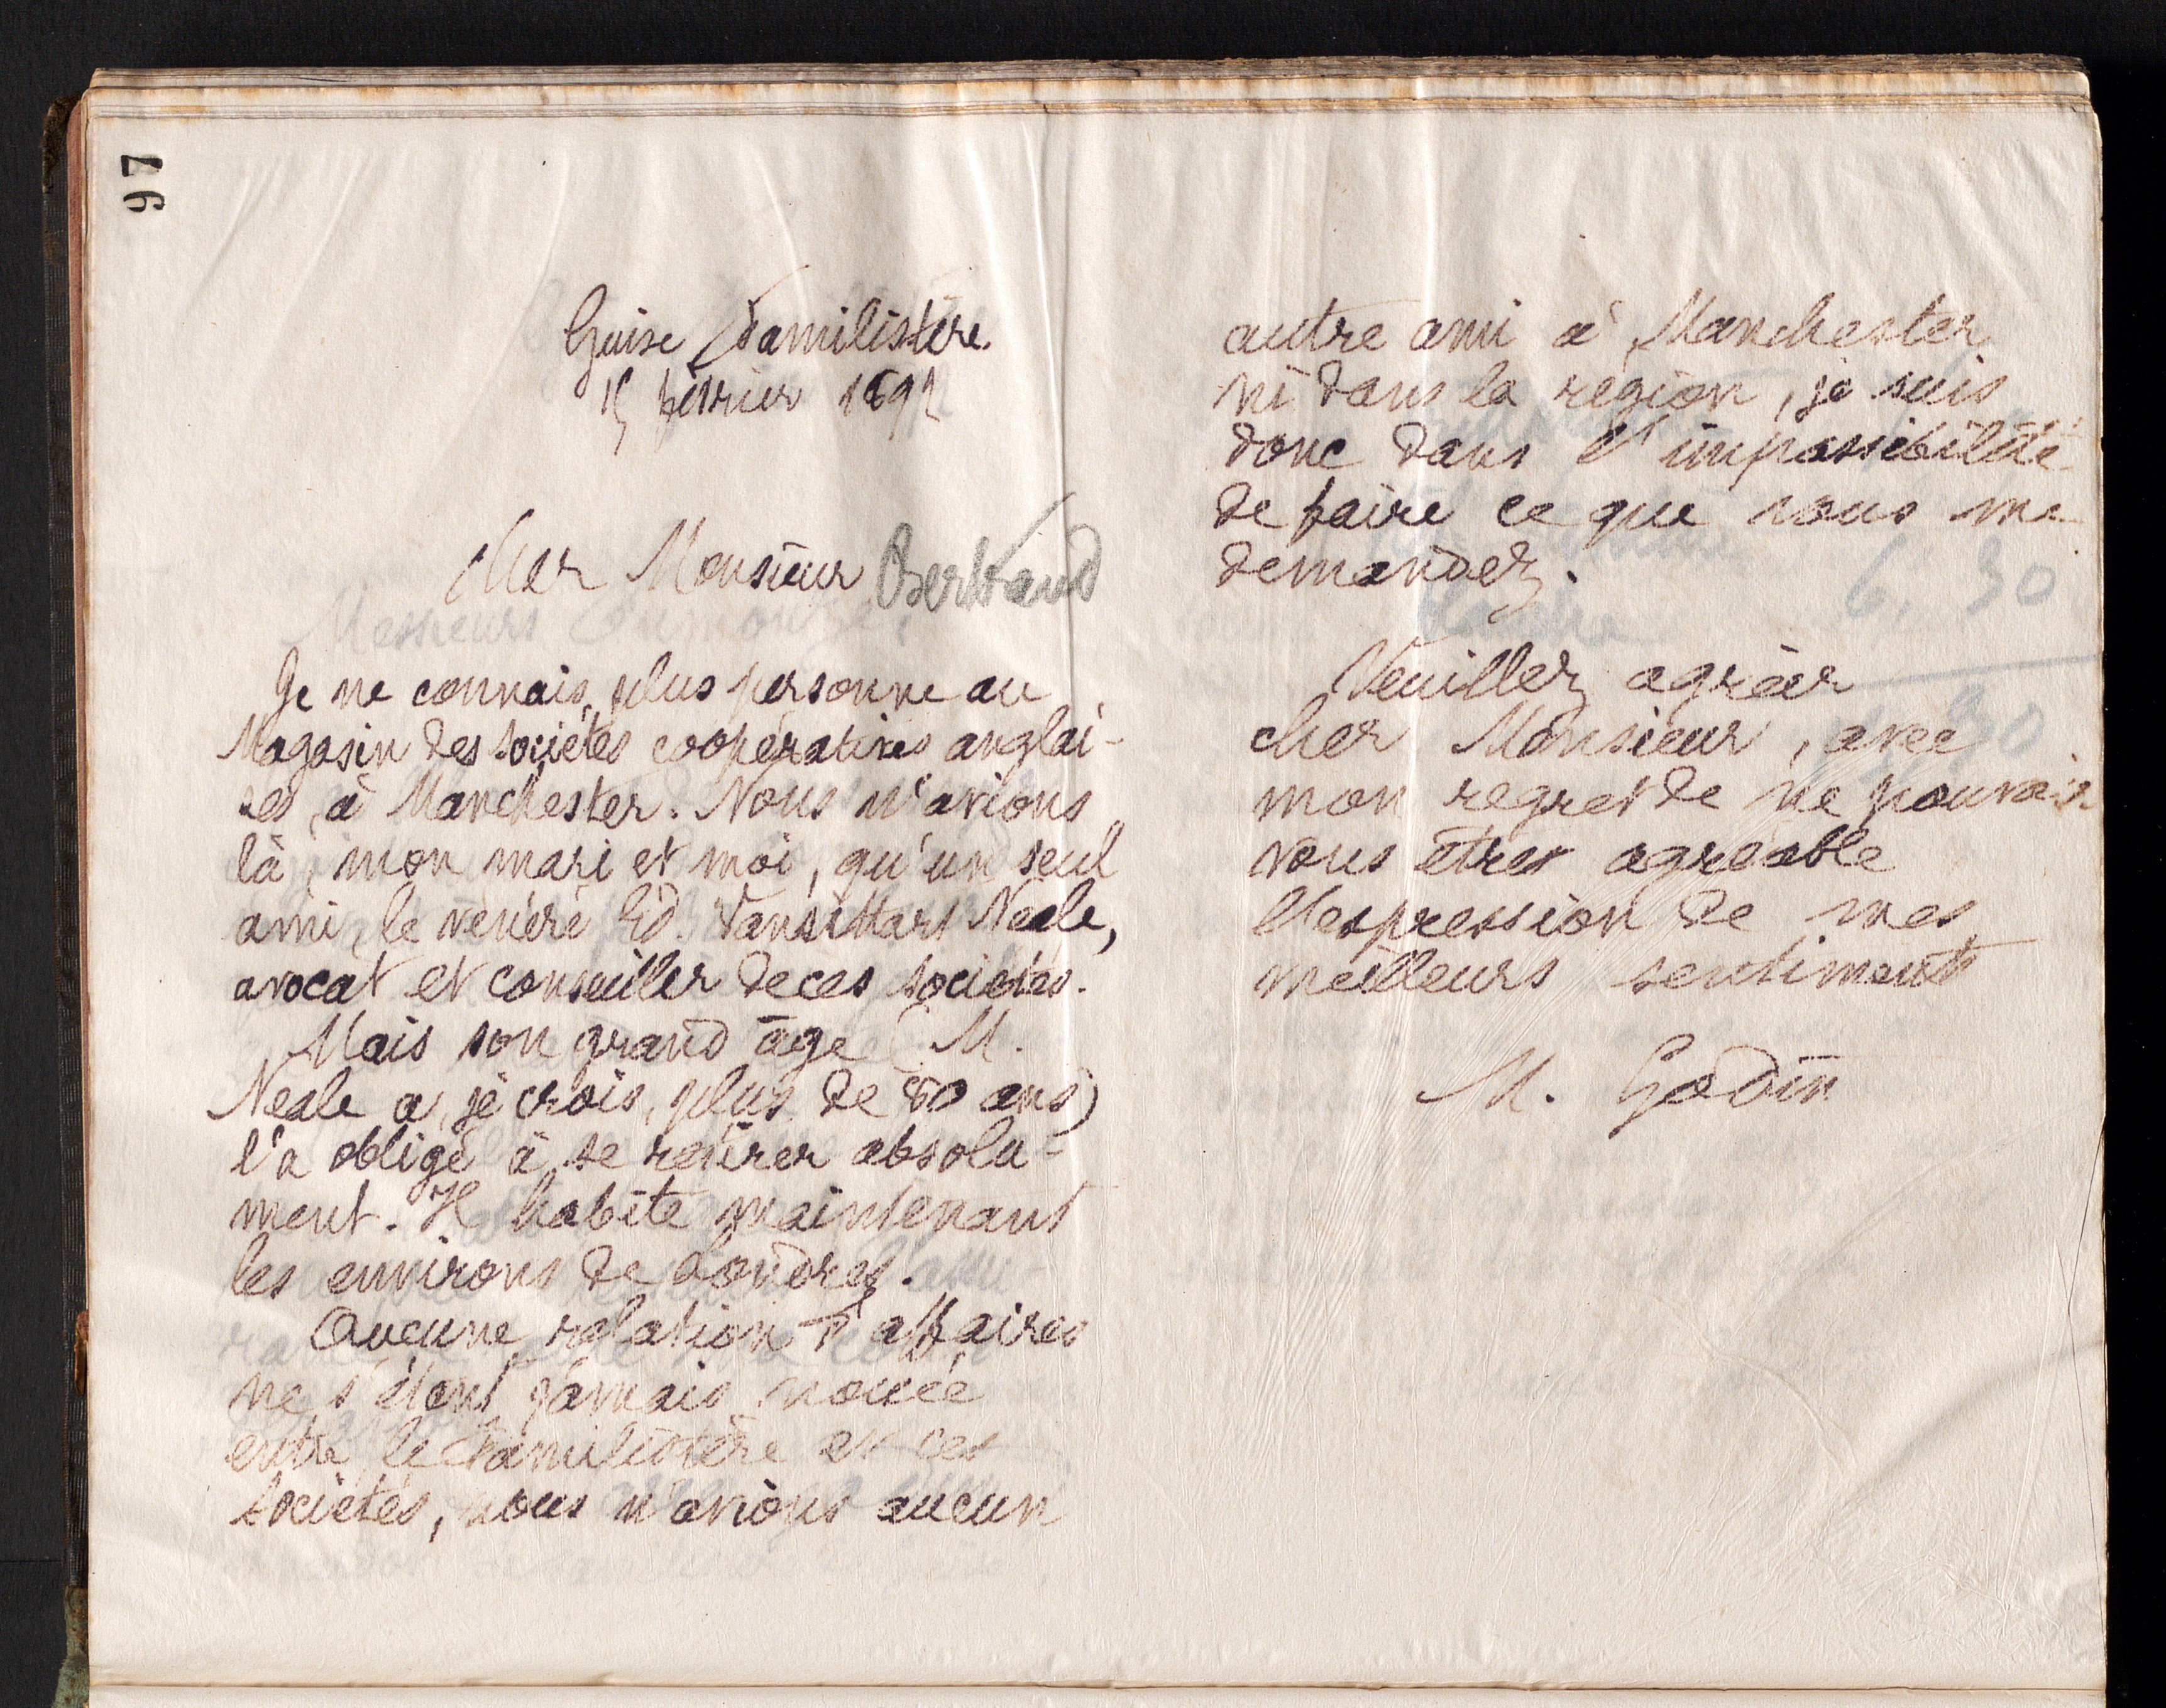 97
Guise Familistère
15 février 1892
Cher Monsieur Bertrand
Je ne connais plus personne au
Magasin des sociétés coopératives anglai-
ses, à Manchester. Nous n'avions
là, mon mari et moi, qu'un seul
ami, le vénéré Ed. Vansittart Neale,
avocat et conseiller de ces sociétés.
Mais son grand âge (M.
Neale a, je crois, plus de 80 ans)
l'a obligé à se retirer absolu-
ment. Il habite maintenant
les environs de Londres.
Aucune relation d'affaires
ne s'étant jamais nouée
entre le Familistère et ces
sociétés, nous n'avions aucun
autre ami à Manchester
ni dans la région, je suis
donc dans l'impossibilité
de faire ce que vous me
demandez.
Veuillez agréer
cher Monsieur, avec
mon regret de ne pouvoir
vous être agréable
l'expression de mes
meilleurs sentiments
M. Godin